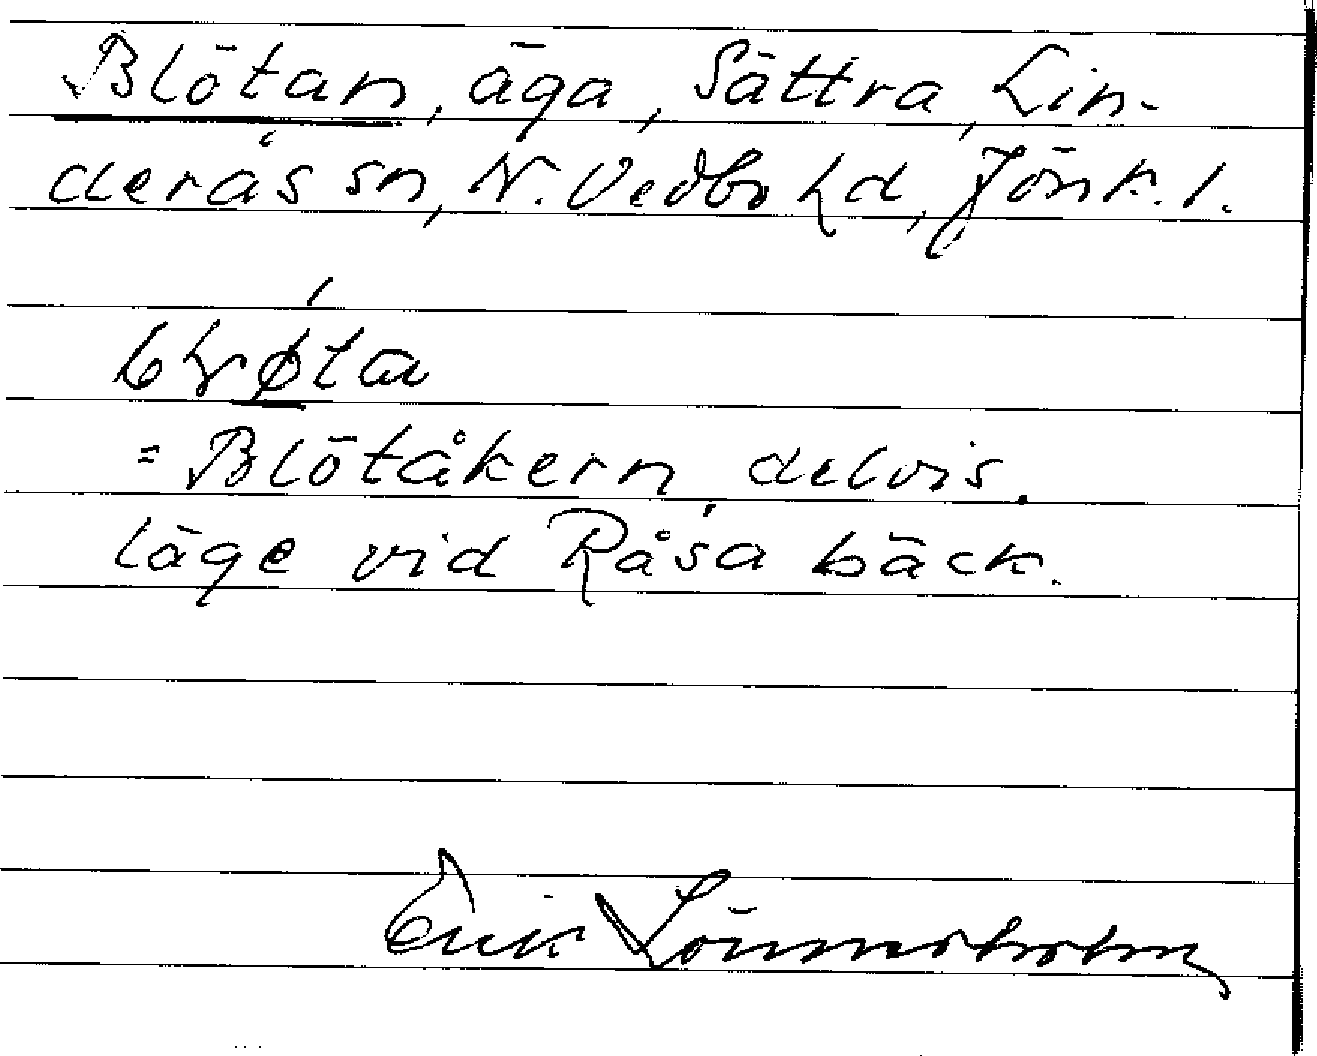 Blötan, äga, Sättra, Lin-
derås sn, N. Vedbo hd, Jönk. l.
= Blötåkern, delvis.
läge vid Råsa bäck.
Erik Lönnerholm